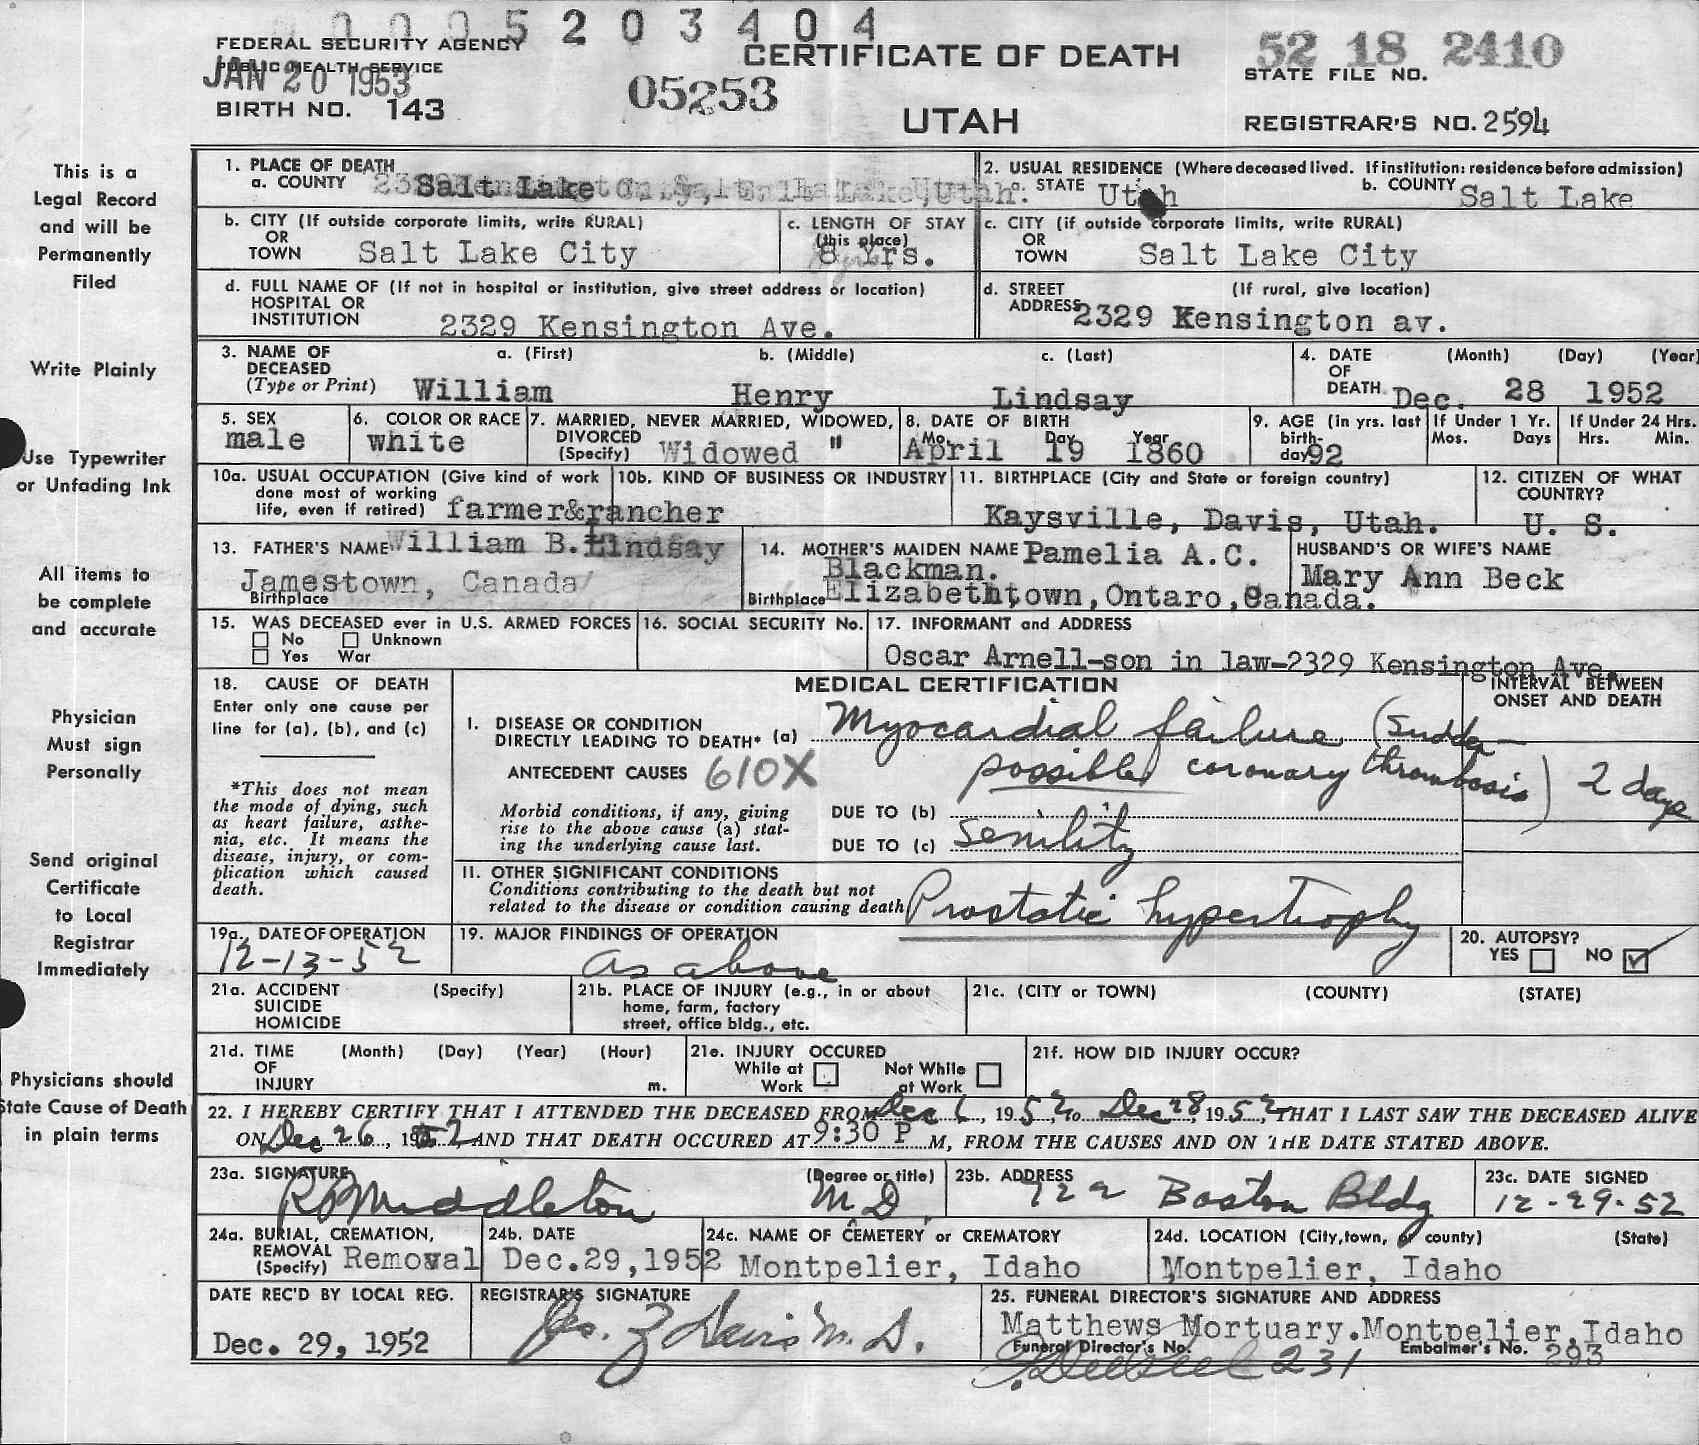 0005203404
FEDERAL SECURITY AGENCY
PUBLIC HEALTH SERVICE
JAN 20 1953
BIRTH NO. 143
05253
CERTIFICATE OF DEATH
UTAH
52 18 2410
STATE FILE NO.
REGISTRAR'S NO. 2594
This is a
Legal Record
and will be
Permanently
Filed
Write Plainly
Use Typewriter
or Unfading Ink
All items to
be complete
and accurate
Physician
Must sign
Personally
Send original
Certificate
to Local
Registrar
Immediately
Physicians should
State Cause of Death
in plain terms
1. PLACE OF DEATH
a. COUNTY Salt Lake
2. USUAL RESIDENCE (Where deceased lived. If institution: residence before admission)
a. STATE Utah b. COUNTY Salt Lake
b. CITY (If outside corporate limits, write RURAL)
OR
TOWN Salt Lake City
c. LENGTH OF STAY
(this place)
8 Yrs.
c. CITY (if outside corporate limits, write RURAL)
OR
TOWN Salt Lake City
d. FULL NAME OF (If not in hospital or institution, give street address or location)
HOSPITAL OR
INSTITUTION 2329 Kensington Ave.
d. STREET (If rural, give location)
ADDRESS 2329 Kensington av.
3. NAME OF DECEASED (Type or Print)
a. (First) b. (Middle) c. (Last)
William Henry Lindsay
4. DATE OF DEATH (Month) (Day) (Year)
Dec. 28 1952
5. SEX
male
6. COLOR OR RACE
white
7. MARRIED, NEVER MARRIED, WIDOWED,
DIVORCED
(Specify) Widowed "
8. DATE OF BIRTH
Mo. Day Year
April 19 1860
9. AGE (in yrs. last
birth-
day) 92
If Under 1 Yr.
Mos. Days
If Under 24 Hrs.
Hrs. Min.
10a. USUAL OCCUPATION (Give kind of work
done most of working
life, even if retired) farmer&rancher
10b. KIND OF BUSINESS OR INDUSTRY
11. BIRTHPLACE (City and State or foreign country)
Kaysville, Davis, Utah.
12. CITIZEN OF WHAT
COUNTRY?
U. S.
13. FATHER'S NAME William B. Lindsay
Jamestown, Canada
Birthplace
14. MOTHER'S MAIDEN NAME Pamelia A.C.
Blackman.
Birthplace Elizabethtown, Ontaro, Canada.
HUSBAND'S OR WIFE'S NAME
Mary Ann Beck
15. WAS DECEASED ever in U.S. ARMED FORCES
No Unknown
Yes War
16. SOCIAL SECURITY No.
17. INFORMANT and ADDRESS
Oscar Arnell-son in law-2329 Kensington Ave.
18. CAUSE OF DEATH
Enter only one cause per
line for (a), (b), and (c)
*This does not mean
the mode of dying, such
as heart failure, asthe-
nia, etc. It means the
disease, injury, or com-
plication which caused
death.
MEDICAL CERTIFICATION
INTERVAL BETWEEN
ONSET AND DEATH
I. DISEASE OR CONDITION
DIRECTLY LEADING TO DEATH* (a) Myocardial failure (Sudden
possible coronary thrombosis) 2 days
ANTECEDENT CAUSES 610X
Morbid conditions, if any, giving
rise to the above cause (a) stat-
ing the underlying cause last.
DUE TO (b)
DUE TO (c) Senility
II. OTHER SIGNIFICANT CONDITIONS
Conditions contributing to the death but not
related to the disease or condition causing death Prostatic hypertrophy
19a. DATE OF OPERATION
12-13-52
19. MAJOR FINDINGS OF OPERATION
as above
20. AUTOPSY?
YES NO ✓
21a. ACCIDENT (Specify)
SUICIDE
HOMICIDE
21b. PLACE OF INJURY (e.g., in or about
home, farm, factory
street, office bldg., etc.
21c. (CITY or TOWN) (COUNTY) (STATE)
21d. TIME (Month) (Day) (Year) (Hour)
OF
INJURY m.
21e. INJURY OCCURED
While at Work Not While at Work
21f. HOW DID INJURY OCCUR?
22. I HEREBY CERTIFY THAT I ATTENDED THE DECEASED FROM Dec 6, 1952, to Dec 28, 1952, THAT I LAST SAW THE DECEASED ALIVE
ON Dec 26, 1952, AND THAT DEATH OCCURED AT 9:30 P M, FROM THE CAUSES AND ON THE DATE STATED ABOVE.
23a. SIGNATURE (Degree or title)
Middleton M.D.
23b. ADDRESS
722 Boston Bldg
23c. DATE SIGNED
12-29-52
24a. BURIAL, CREMATION,
REMOVAL
(Specify) Removal
24b. DATE
Dec.29,1952
24c. NAME OF CEMETERY or CREMATORY
Montpelier, Idaho
24d. LOCATION (City, town, or county) (State)
Montpelier, Idaho
DATE REC'D BY LOCAL REG.
Dec. 29, 1952
REGISTRAR'S SIGNATURE
Jas. Z Davis M.D.
25. FUNERAL DIRECTOR'S SIGNATURE AND ADDRESS
Matthews Mortuary.Montpelier,Idaho
Funeral Director's No. 231
Embalmer's No. 293